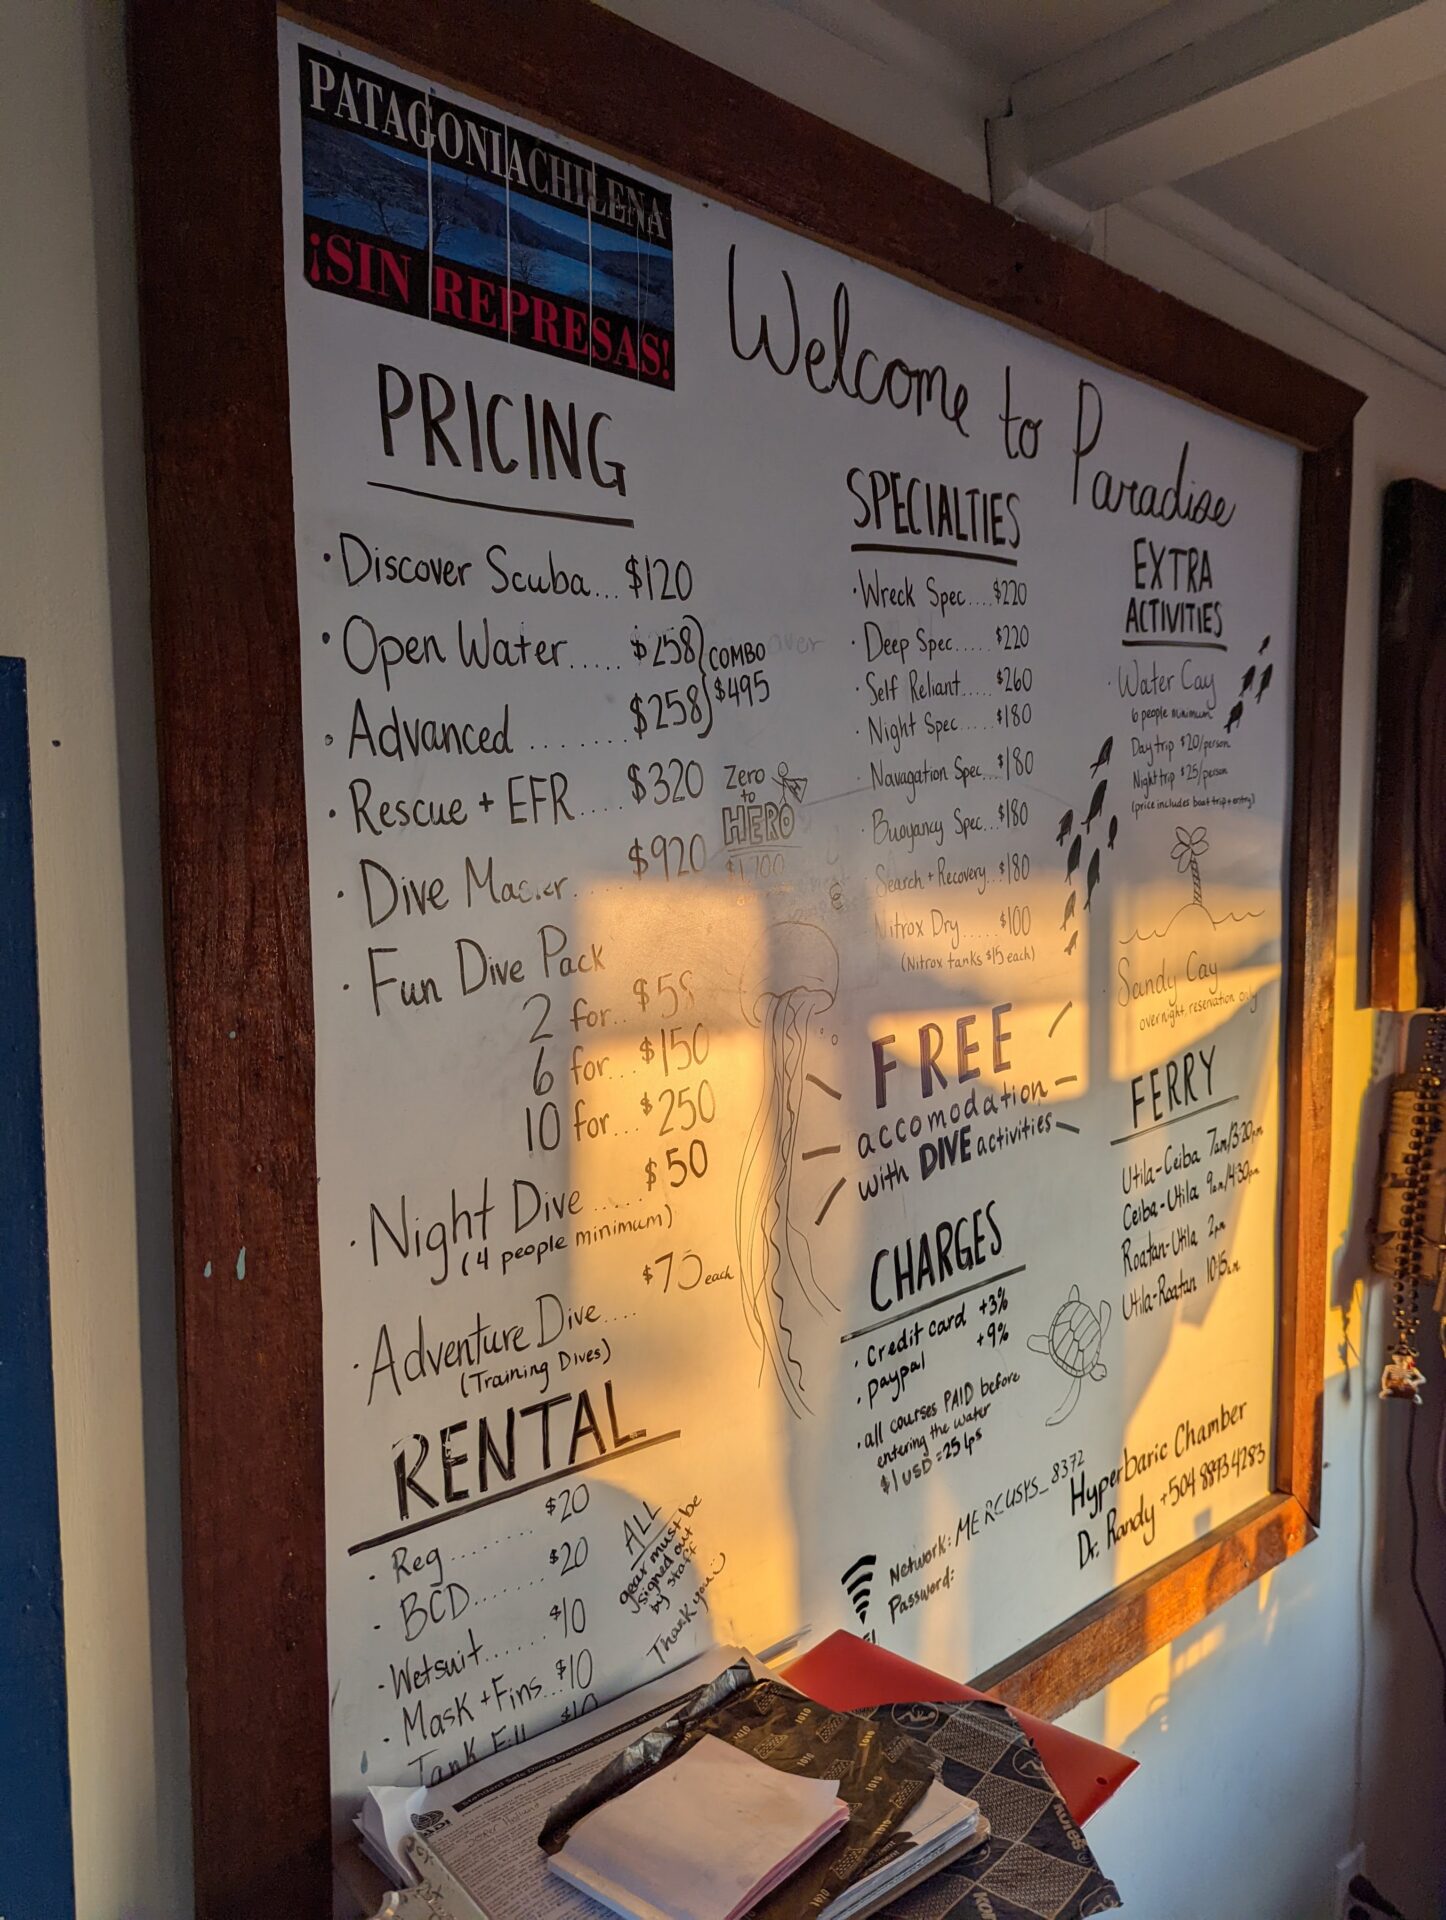 PATAGONIA CHILENA
¡SIN REPRESAS!
Welcome to Paradise
PRICING
· Discover Scuba... $120
· Open Water..... $258
· Advanced ....... $258
COMBO
$495
· Rescue + EFR.... $320
· Dive Master... $920
Zero
to
HERO
· Fun Dive Pack
2 for... $58
6 for... $150
10 for... $250
· Night Dive .... $50
(4 people minimum)
· Adventure Dive.... $70 each
(Training Dives)
RENTAL
· Reg......... $20
· BCD........ $20
· Wetsuit...... $10
· Mask + Fins... $10
Tank Fill $10
ALL
gear must be
signed out
by staff
Thank you :)
SPECIALTIES
· Wreck Spec.... $220
· Deep Spec..... $220
· Self Reliant..... $260
· Night Spec..... $180
· Navagation Spec... $180
· Buoyancy Spec... $180
· Search + Recovery... $180
· Nitrox Dry..... $100
(Nitrox tanks $15 each)
FREE
accomodation
with DIVE activities
CHARGES
· Credit card +3%
· Paypal +9%
· all courses PAID before
entering the water
$1 USD = 25 lps
Network: MERCUSYS_8372
Password:
EXTRA
ACTIVITIES
· Water Cay
6 people minimum
Day trip $20/person
Night trip $25/person
(price includes boat trip + entry)
· Sandy Cay
overnight, reservation only
FERRY
Utila-Ceiba 7am/3:20pm
Ceiba-Utila 9am/4:30pm
Roatan-Utila 2pm
Utila-Roatan 10:15am
Hyperbaric Chamber
Dr. Randy +504 8893 4283